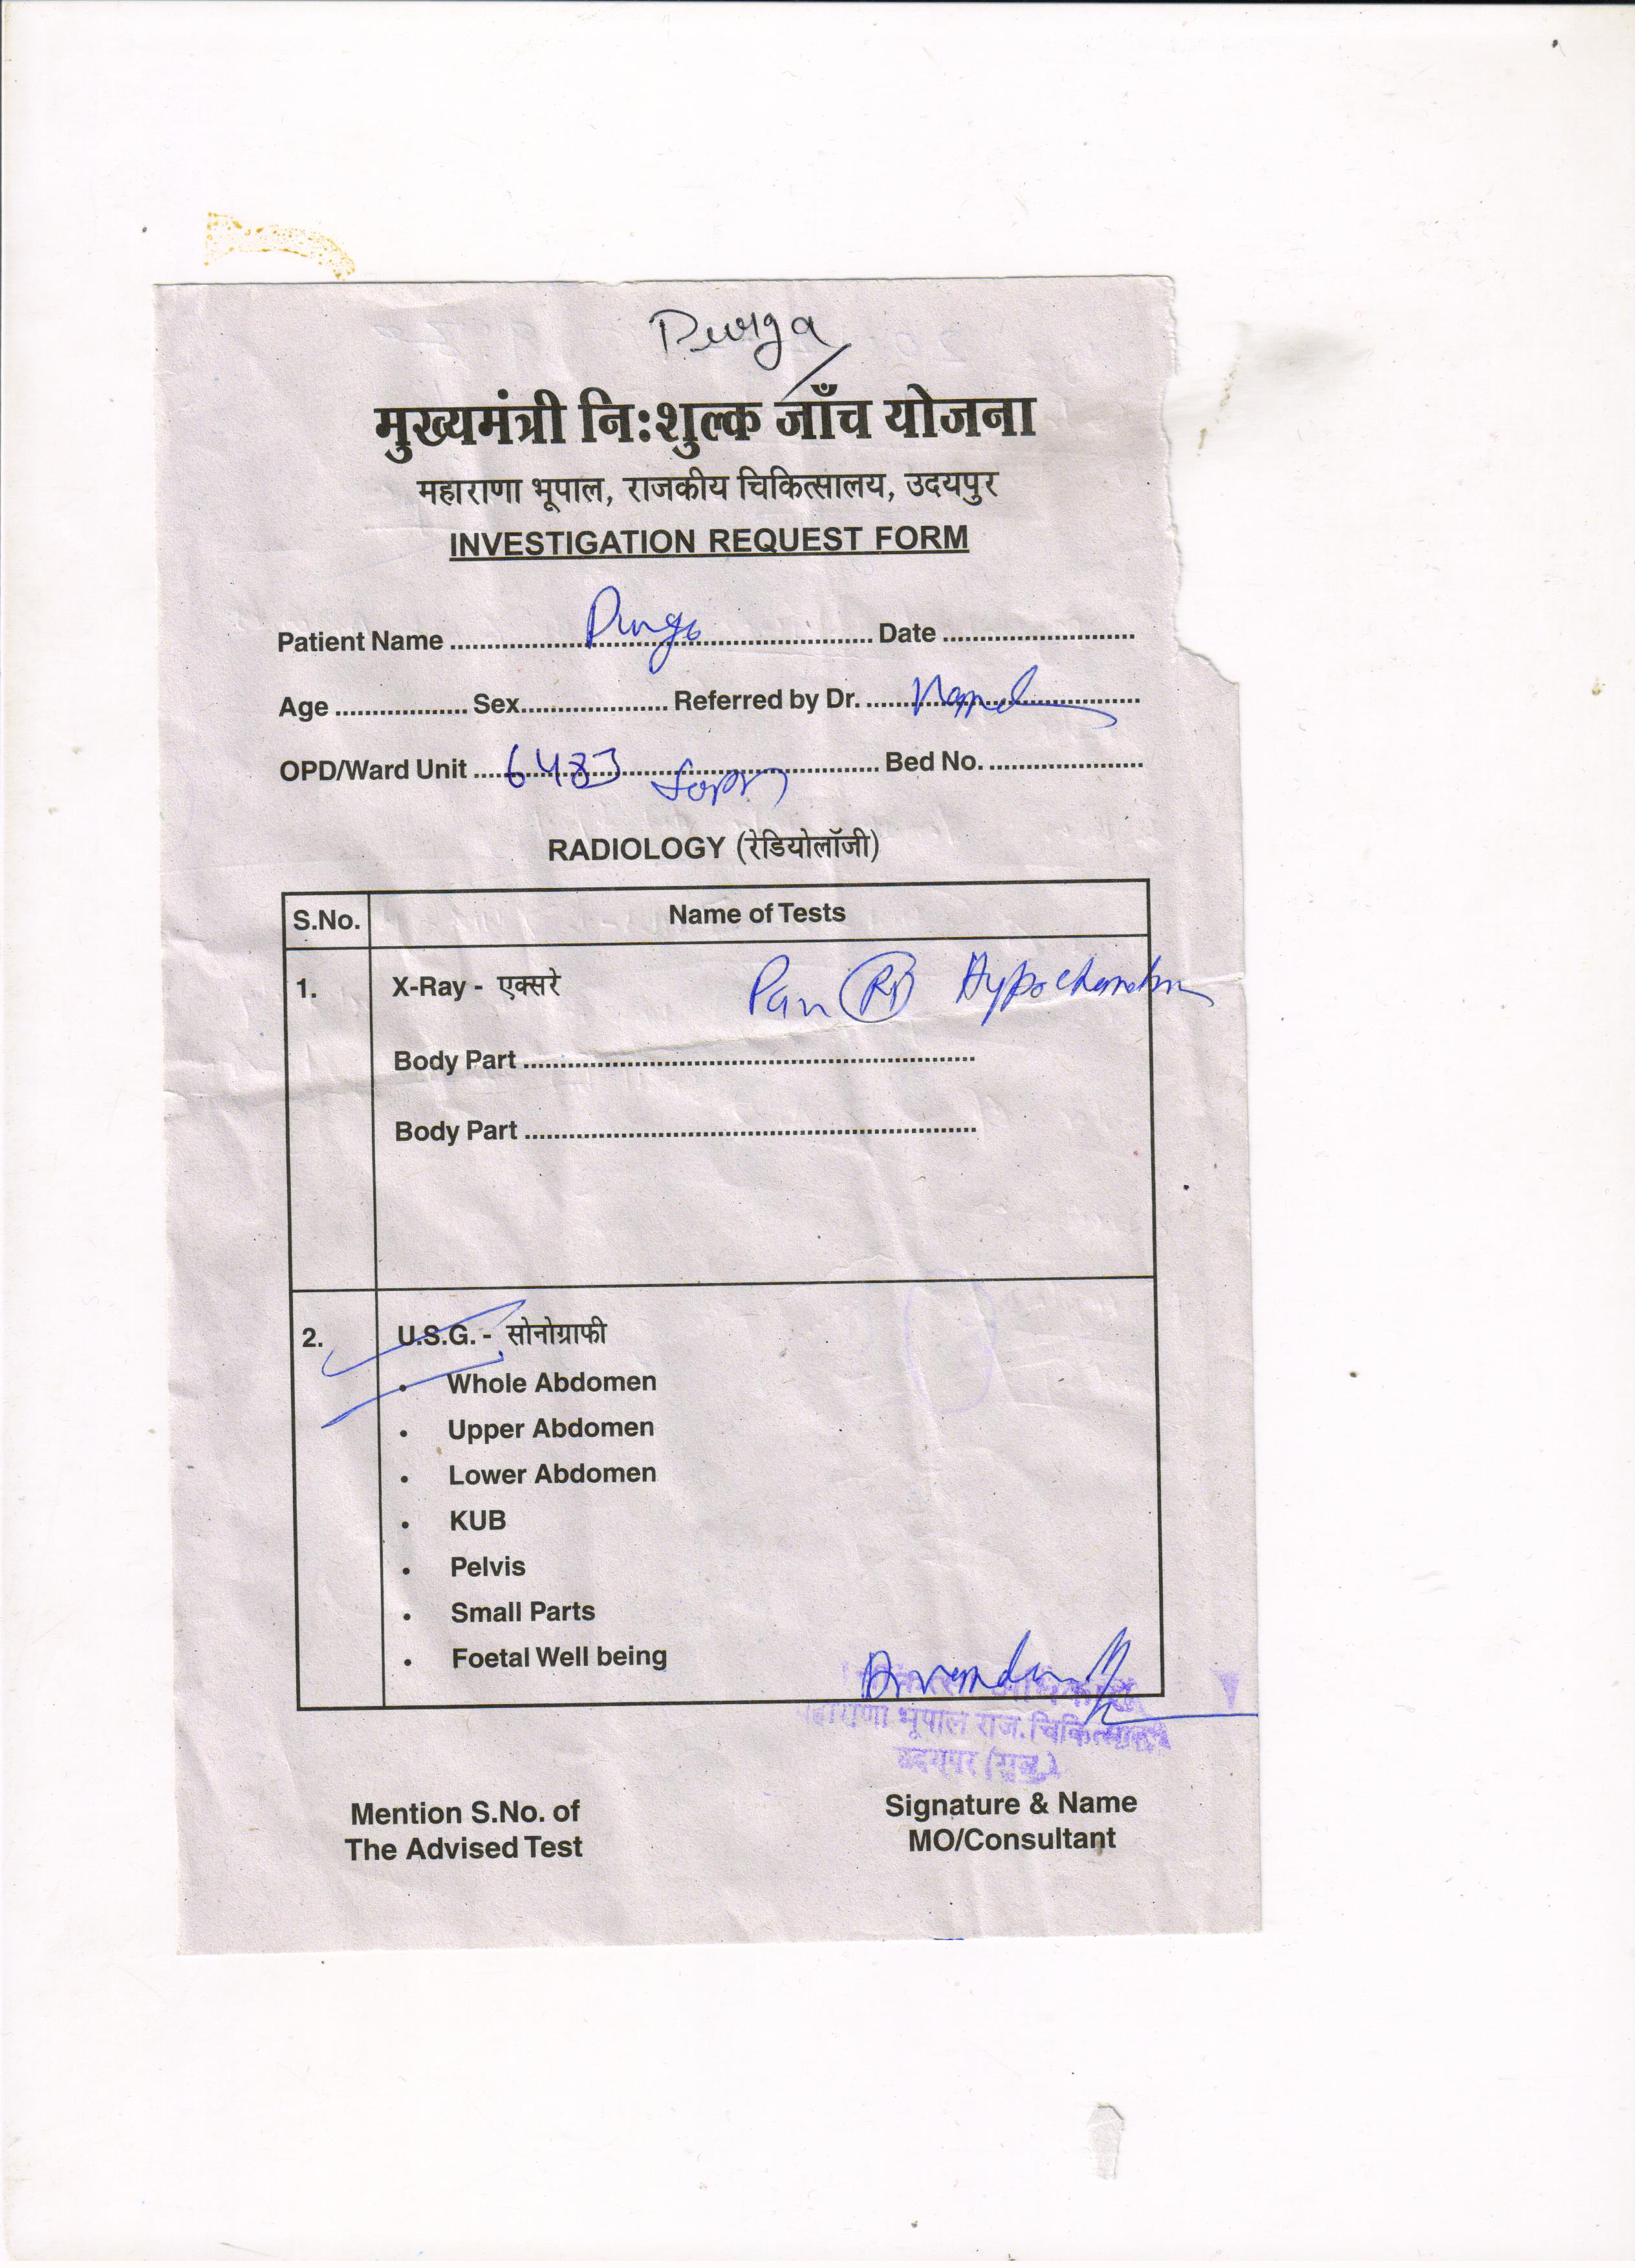 Durga
मुख्यमंत्री नि:शुल्क जाँच योजना
महाराणा भूपाल, राजकीय चिकित्सालय, उदयपुर
INVESTIGATION REQUEST FORM
Patient Name ........ Durga ........ Date ........
Age ........ Sex........ Referred by Dr. ........
OPD/Ward Unit ........ 6483 ........ Bed No. ........
RADIOLOGY (रेडियोलॉजी)
S.No. Name of Tests
1. X-Ray - एक्सरे Pain Rt Hypochondrium
Body Part ........
Body Part ........
2. U.S.G. - सोनोग्राफी
• Whole Abdomen
• Upper Abdomen
• Lower Abdomen
• KUB
• Pelvis
• Small Parts
• Foetal Well being
महाराणा भूपाल राज. चिकित्सालय
Mention S.No. of
The Advised Test
Signature & Name
MO/Consultant